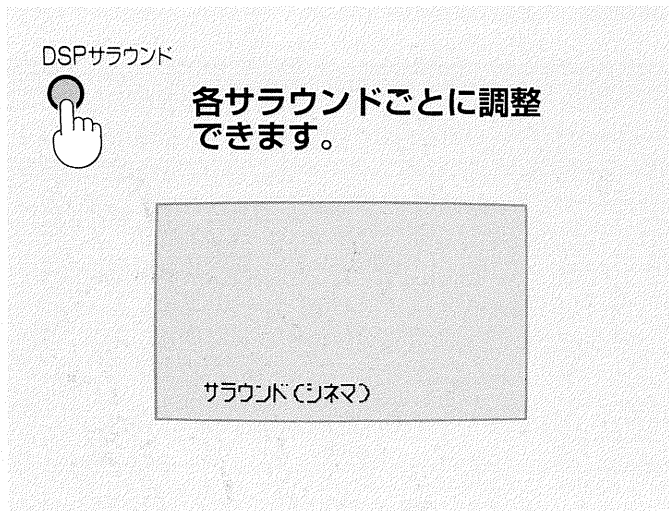 DSPサラウンド
各サラウンドごとに調整
できます。
サラウンド(シネマ)